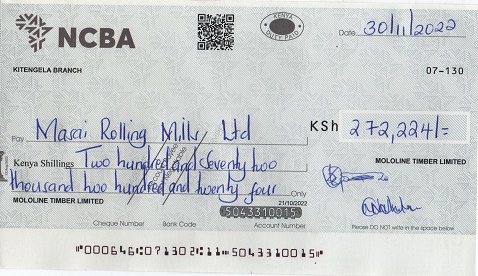 NCBA
KENYA
DUTY PAID
Date 30/11/2022
KITENGELA BRANCH
07-130
Pay Masai Rolling Mills Ltd
KSh 272,224/=
Kenya Shillings Two hundred and seventy two
MOLOLINE TIMBER LIMITED
thousand two hundred and twenty four Only
MOLOLINE TIMBER LIMITED
21/10/2022
5043310015
Cheque Number Bank Code Account Number
Please DO NOT write in the space below
"000646 071302 11 5043310015"